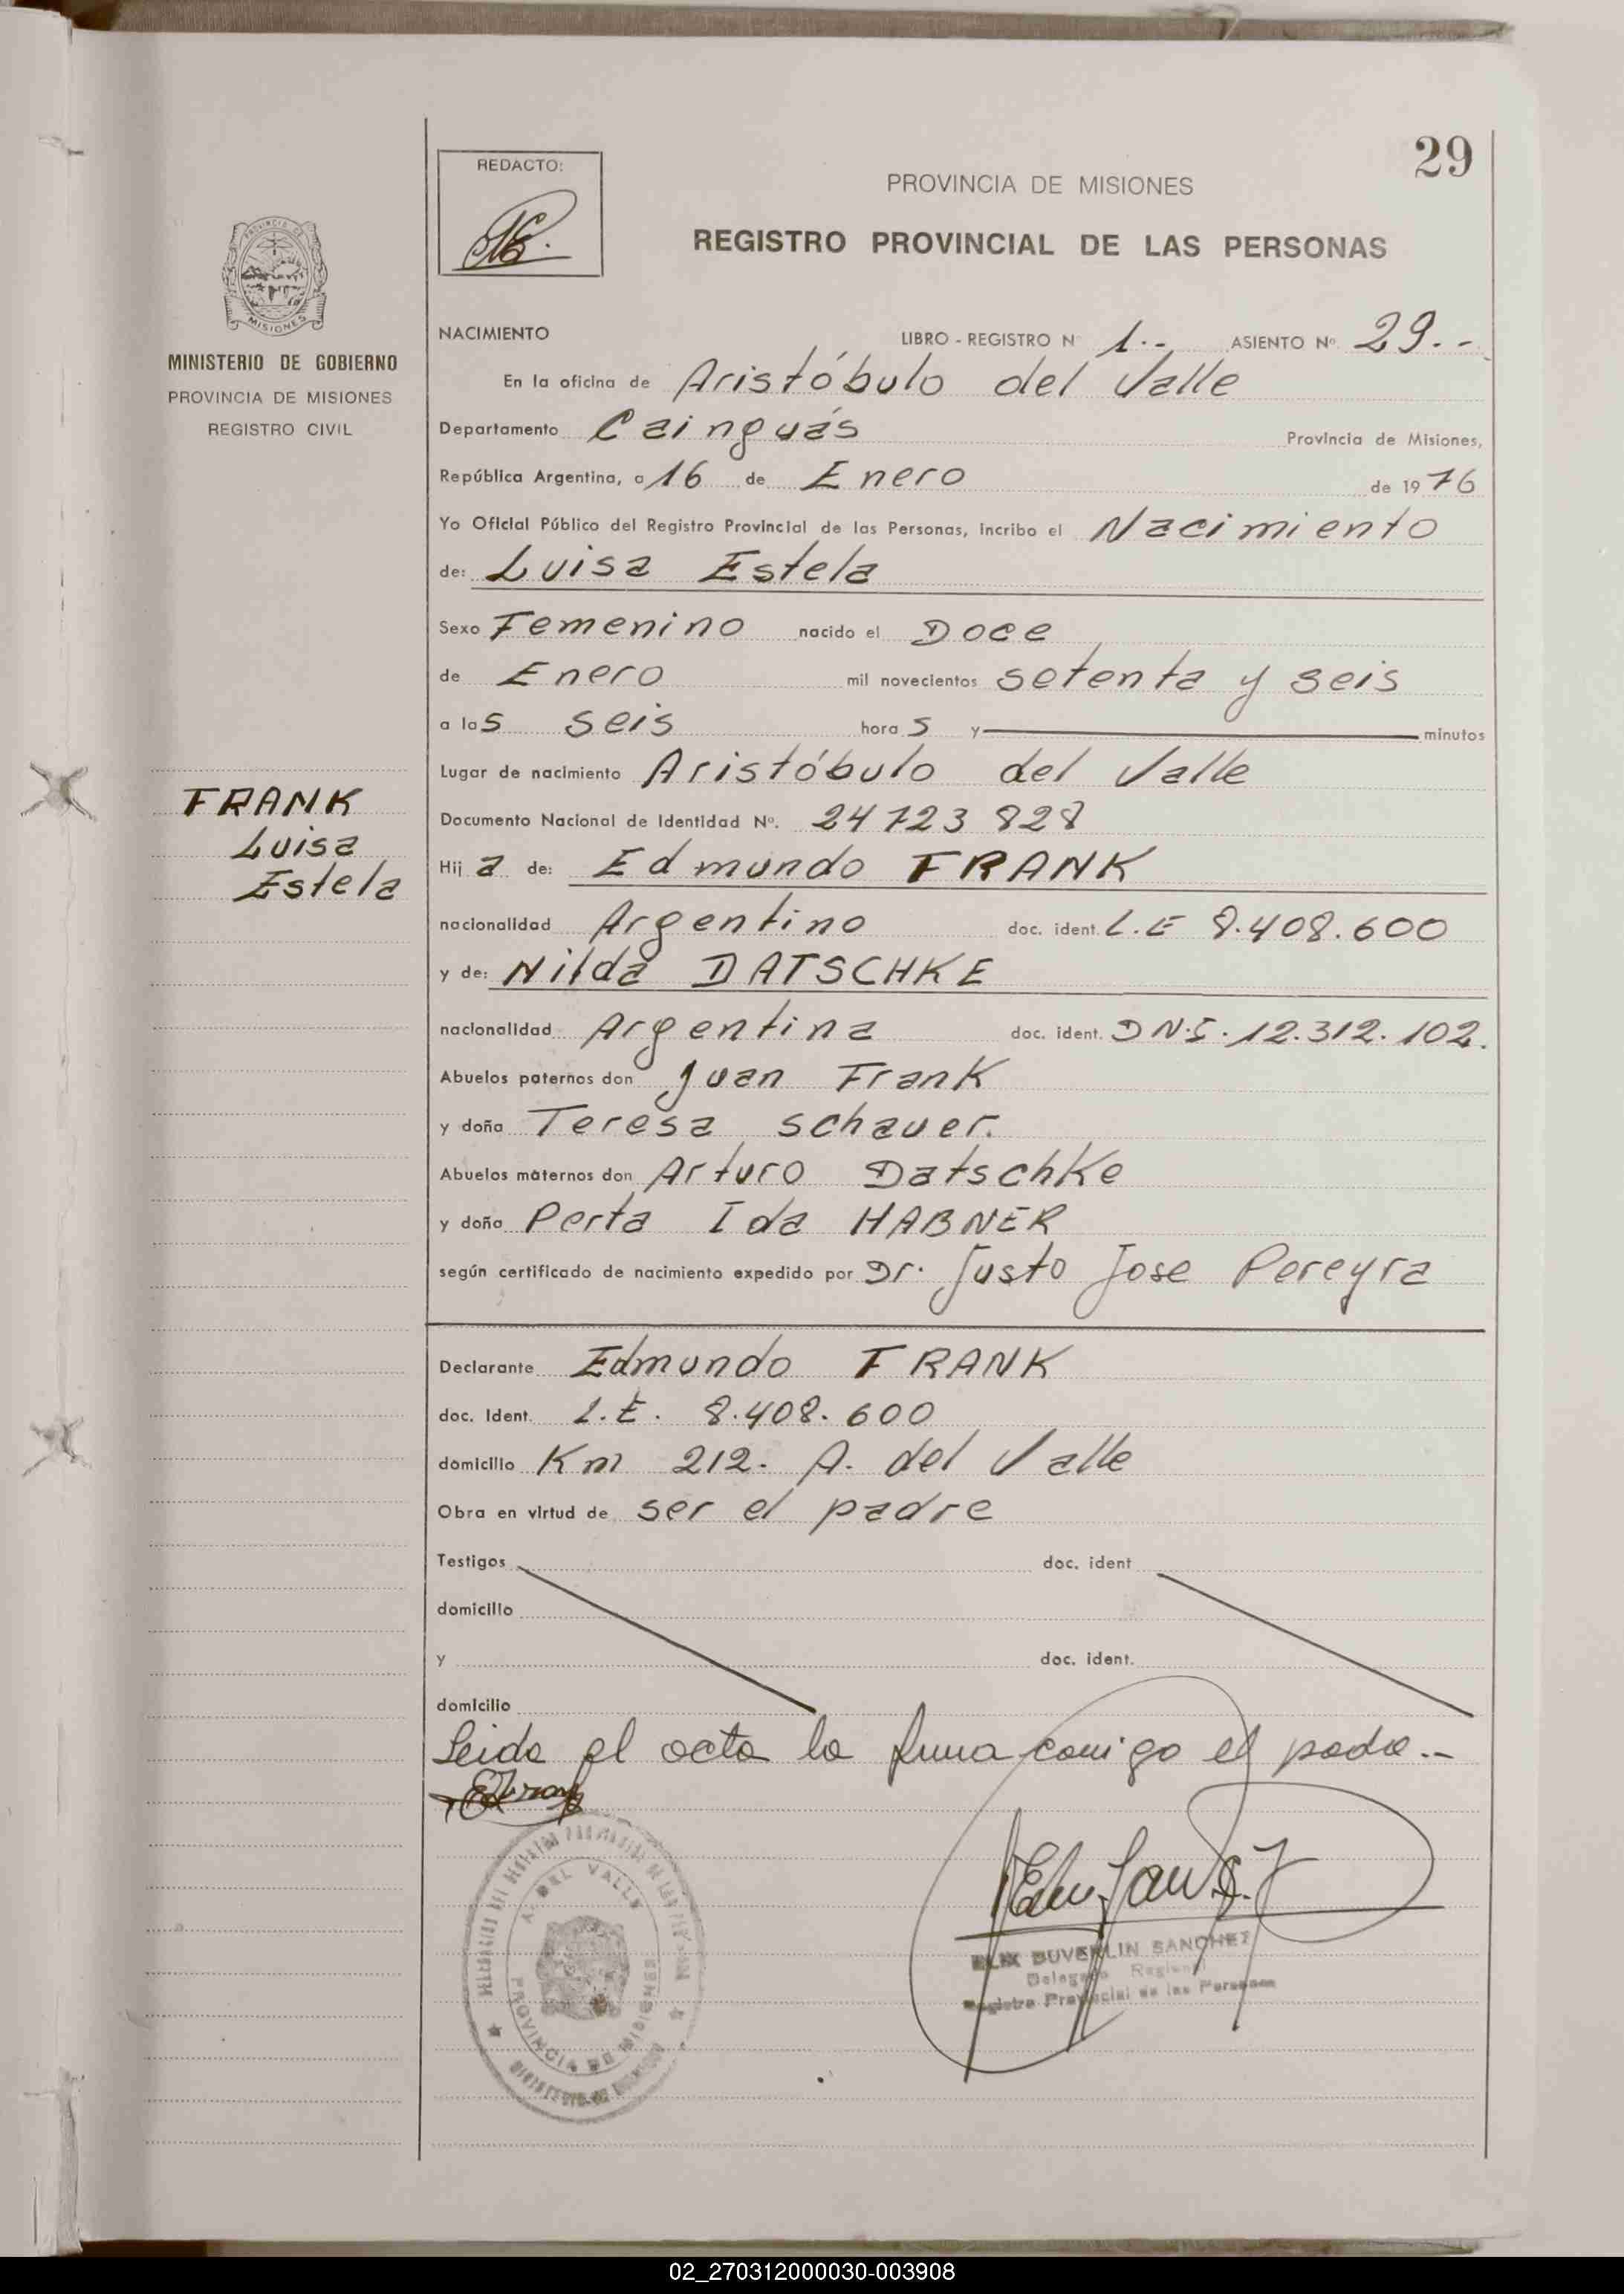 29
REDACTO:
PROVINCIA DE MISIONES
REGISTRO PROVINCIAL DE LAS PERSONAS
PROVINCIA DE
MISIONES
MINISTERIO DE GOBIERNO
PROVINCIA DE MISIONES
REGISTRO CIVIL
NACIMIENTO LIBRO - REGISTRO N° 1.- ASIENTO Nº 29.-
En la oficina de Aristóbulo del Valle
Departamento Cainguás Provincia de Misiones,
República Argentina, a 16 de Enero de 1976
Yo Oficial Público del Registro Provincial de las Personas, incribo el Nacimiento
de: Luisa Estela
Sexo Femenino nacido el Doce
de Enero mil novecientos setenta y seis
a las seis horas y minutos
Lugar de nacimiento Aristóbulo del Valle
FRANK
Luisa
Estela
Documento Nacional de Identidad Nº. 24723828
Hija de: Edmundo FRANK
nacionalidad Argentino doc. ident. L.E 8.408.600
y de: Nilda DATSCHKE
nacionalidad Argentina doc. ident. DN.I. 12.312.102.
Abuelos paternos don Juan Frank
y doña Teresa Schauer.
Abuelos maternos don Arturo Datschke
y doña Perta Ida HABNER
según certificado de nacimiento expedido por Dr. Justo Jose Pereyra
Declarante Edmundo FRANK
doc. Ident. L.E. 8.408.600
domicilio Km 212. A. del Valle
Obra en virtud de ser el padre
Testigos doc. ident
domicilio
y doc. ident.
domicilio
Leida el acta la firma conmigo el padre.-
A. DEL VALLE
PROVINCIA DE MISIONES
DUVERLIN SANCHEZ
Delegado Regional
Registro Provincial de las Personas
02_270312000030-003908